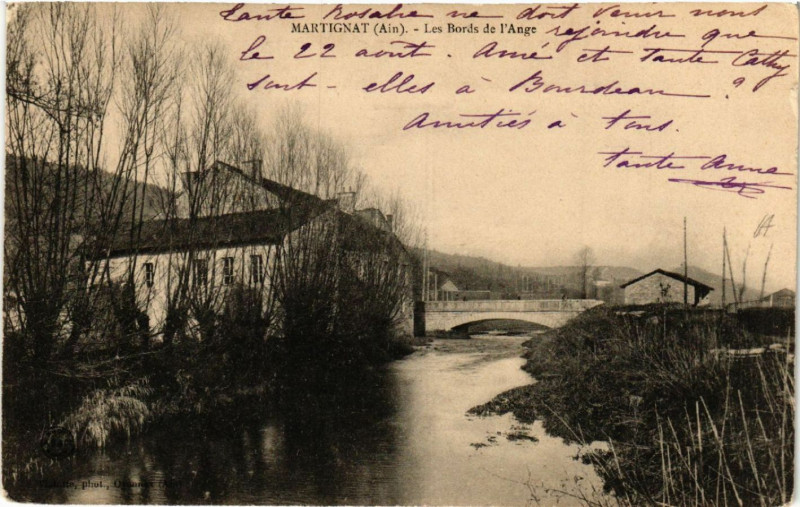 Tante Rosalie ne doit venir nous
MARTIGNAT (Ain). - Les Bords de l'Ange
rejoindre que
le 22 aout. Amé et tante Cathy
sont-elles à Bourdeau ?
Amitiés à tous.
Tante Anne
phot.,